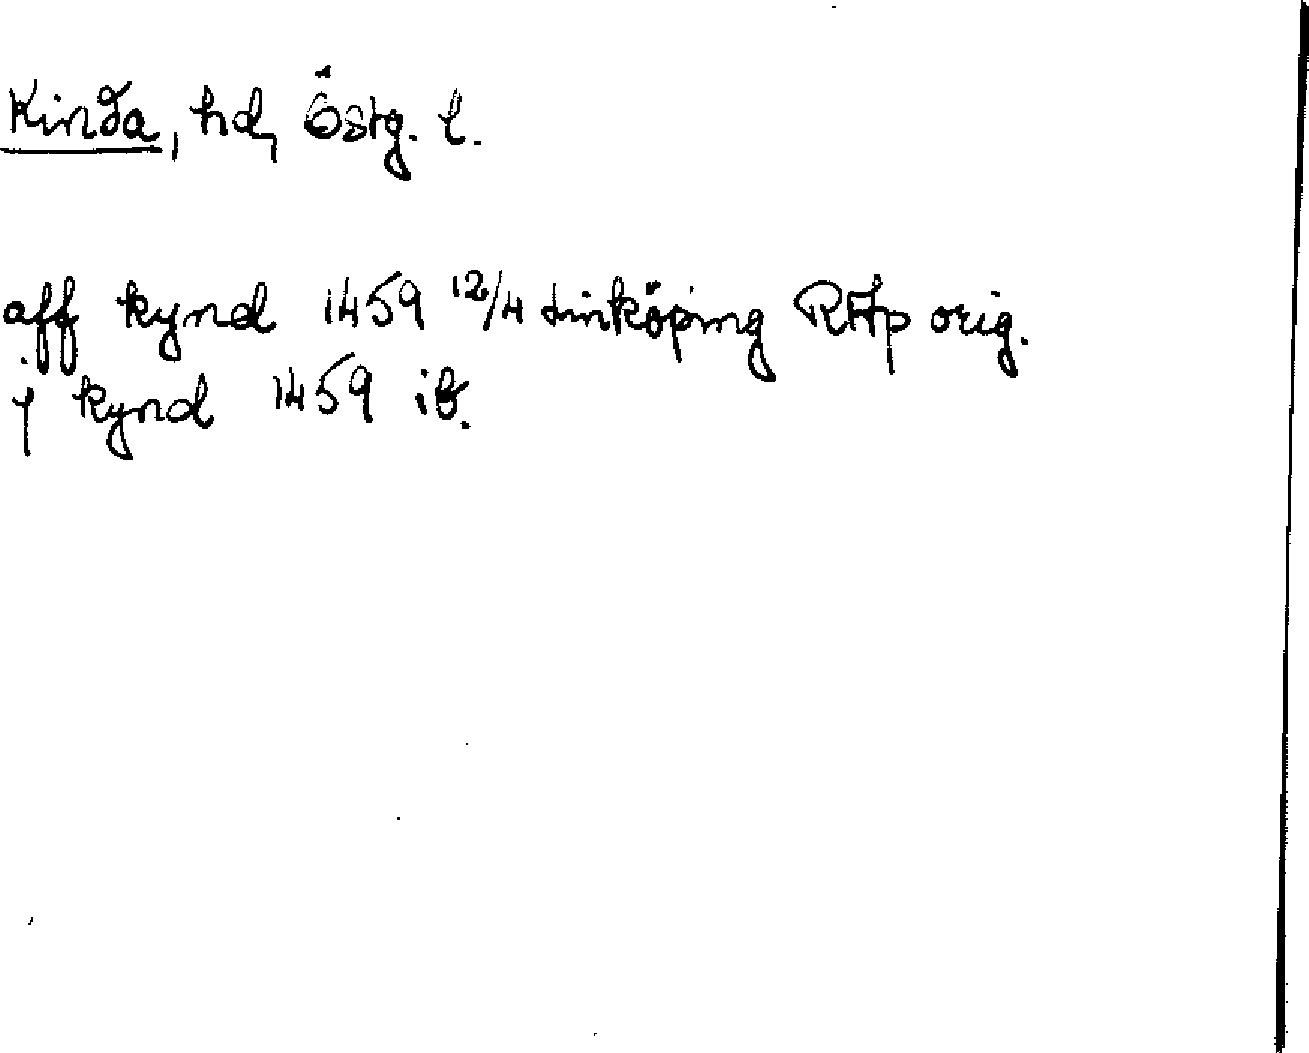 Kinda, hd, Östg. l.
aff kynd 1459 12/4 Linköping RAp orig.
j kynd 1459 ib.